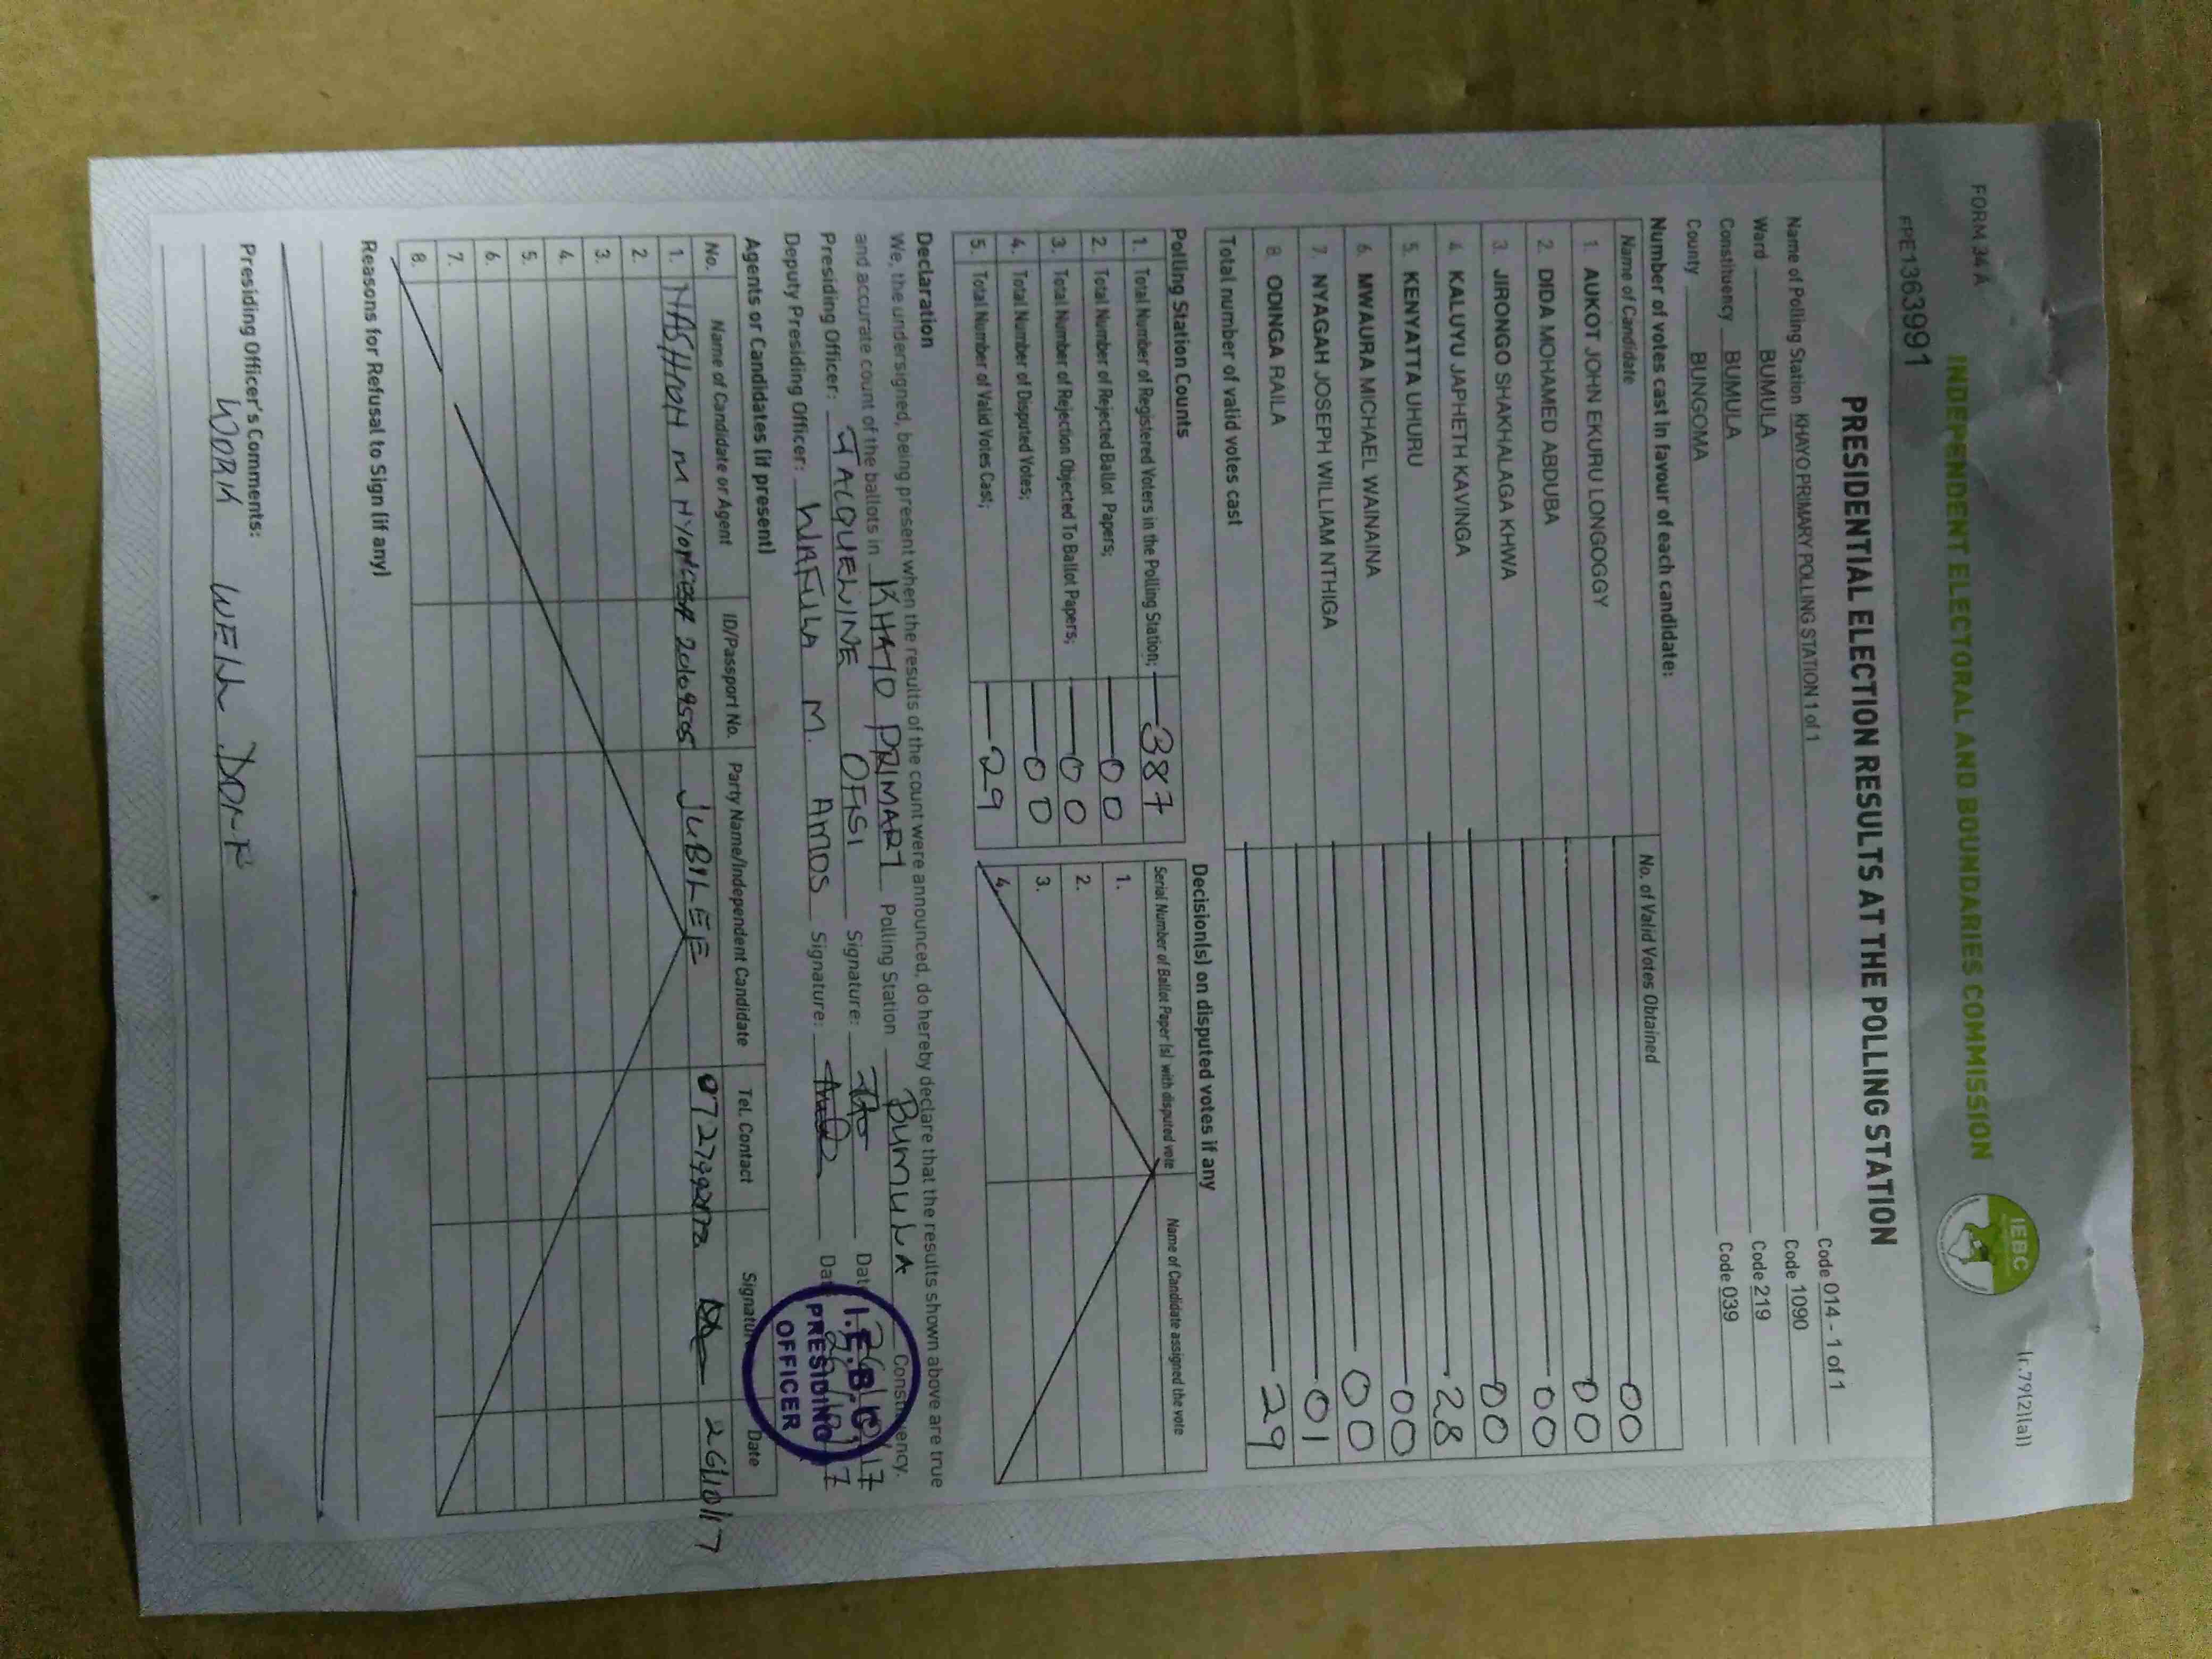 FORM 34 A
(r.79(2)(a))
INDEPENDENT ELECTORAL AND BOUNDARIES COMMISSION
IEBC
FPE1363991
PRESIDENTIAL ELECTION RESULTS AT THE POLLING STATION
Name of Polling Station KHAYO PRIMARY POLLING STATION 1 of 1 Code 014 - 1 of 1
Ward BUMULA Code 1090
Constituency BUMULA Code 219
County BUNGOMA Code 039
Number of votes cast in favour of each candidate:
Name of Candidate No. of Valid Votes Obtained
1. AUKOT JOHN EKURU LONGOGGY 00
2. DIDA MOHAMED ABDUBA 00
3. JIRONGO SHAKHALAGA KHWA 00
4. KALUYU JAPHETH KAVINGA 00
5. KENYATTA UHURU 28
6. MWAURA MICHAEL WAINAINA 00
7. NYAGAH JOSEPH WILLIAM NTHIGA 00
8. ODINGA RAILA 01
Total number of valid votes cast 29
Polling Station Counts
1. Total Number of Registered Voters in the Polling Station; 387
2. Total Number of Rejected Ballot Papers; 00
3. Total Number of Rejection Objected To Ballot Papers; 00
4. Total Number of Disputed Votes; 00
5. Total Number of Valid Votes Cast; 29
Decision(s) on disputed votes if any
Serial Number of Ballot Paper (s) with disputed vote Name of Candidate assigned the vote
1.
2.
3.
4.
Declaration
We, the undersigned, being present when the results of the count were announced, do hereby declare that the results shown above are true
and accurate count of the ballots in KHAYO PRIMARY Polling Station BUMULA Constituency.
Presiding Officer: JACQUELINE OFISI Signature: Date 26/10/17
Deputy Presiding Officer: WAFULA M. AMOS Signature: Date 26/10/17
I.E.B.C.
PRESIDING
OFFICER
Agents or Candidates (if present)
No. Name of Candidate or Agent ID/Passport No. Party Name/Independent Candidate Tel. Contact Signature Date
1. M JUBILEE 26/10/17
2.
3.
4.
5.
6.
7.
8.
Reasons for Refusal to Sign (if any)
Presiding Officer's Comments:
WORK WELL DONE